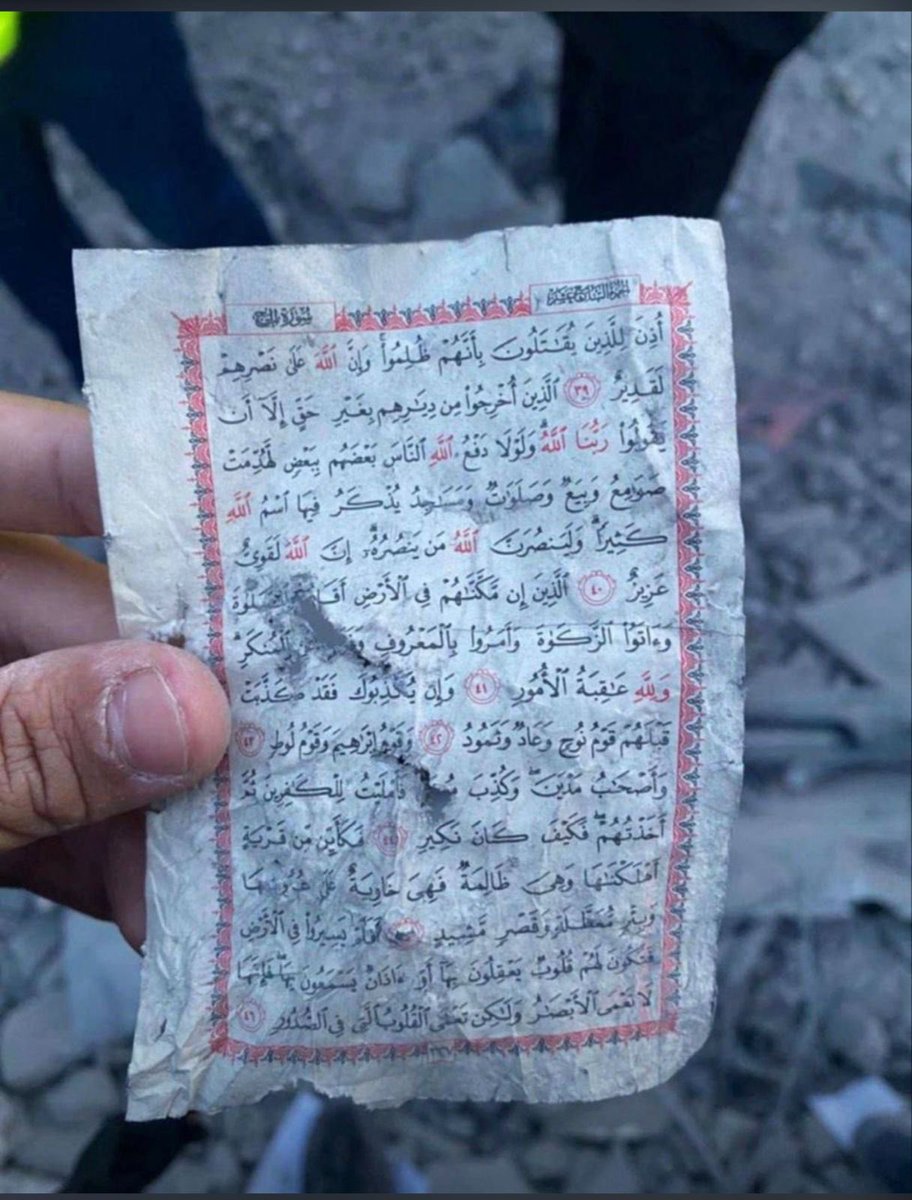 سُورَةُ الحَجّ
الجُزءُ السَّابِعَ عَشَرَ
أُذِنَ لِلَّذِينَ يُقَٰتَلُونَ بِأَنَّهُمْ ظُلِمُوا۟ ۚ وَإِنَّ ٱللَّهَ عَلَىٰ نَصْرِهِمْ
لَقَدِيرٌ ٣٩ ٱلَّذِينَ أُخْرِجُوا۟ مِن دِيَٰرِهِم بِغَيْرِ حَقٍّ إِلَّآ أَن
يَقُولُوا۟ رَبُّنَا ٱللَّهُ ۗ وَلَوْلَا دَفْعُ ٱللَّهِ ٱلنَّاسَ بَعْضَهُم بِبَعْضٍ لَّهُدِّمَتْ
صَوَٰمِعُ وَبِيَعٌ وَصَلَوَٰتٌ وَمَسَٰجِدُ يُذْكَرُ فِيهَا ٱسْمُ ٱللَّهِ
كَثِيرًا ۗ وَلَيَنصُرَنَّ ٱللَّهُ مَن يَنصُرُهُۥٓ ۗ إِنَّ ٱللَّهَ لَقَوِىٌّ
عَزِيزٌ ٤٠ ٱلَّذِينَ إِن مَّكَّنَّٰهُمْ فِى ٱلْأَرْضِ ٱلصَّلَوٰةَ
وَءَاتَوُا۟ ٱلزَّكَوٰةَ وَأَمَرُوا۟ بِٱلْمَعْرُوفِ ٱلْمُنكَرِ ۗ
وَلِلَّهِ عَٰقِبَةُ ٱلْأُمُورِ ٤١ وَإِن يُكَذِّبُوكَ فَقَدْ كَذَّبَتْ
قَبْلَهُمْ قَوْمُ نُوحٍ وَعَادٌ وَثَمُودُ ٤٢ وَقَوْمُ إِبْرَٰهِيمَ وَقَوْمُ لُوطٍ ٤٣
وَأَصْحَٰبُ مَدْيَنَ ۖ وَكُذِّبَ فَأَمْلَيْتُ لِلْكَٰفِرِينَ ثُمَّ
أَخَذْتُهُمْ ۖ فَكَيْفَ كَانَ نَكِيرِ ٤٤ فَكَأَيِّن مِّن قَرْيَةٍ
أَهْلَكْنَٰهَا وَهِىَ ظَالِمَةٌ فَهِىَ خَاوِيَةٌ عَلَىٰ عُرُوشِهَا
وَبِئْرٍ مُّعَطَّلَةٍ وَقَصْرٍ مَّشِيدٍ أَفَلَمْ يَسِيرُوا۟ فِى ٱلْأَرْضِ
فَتَكُونَ لَهُمْ قُلُوبٌ يَعْقِلُونَ بِهَآ أَوْ ءَاذَانٌ يَسْمَعُونَ بِهَا ۖ فَإِنَّهَا
لَا تَعْمَى ٱلْأَبْصَٰرُ وَلَٰكِن تَعْمَى ٱلْقُلُوبُ ٱلَّتِى فِى ٱلصُّدُورِ ٤٦